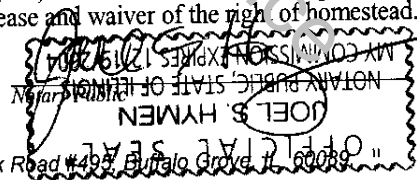 ease and waiver of the right of homestead.
Notary Public
"OFFICIAL SEAL"
JOEL S. HYMEN
NOTARY PUBLIC, STATE OF ILLINOIS
MY COMMISSION EXPIRES 12/19/2004
k Road #495, Buffalo Grove, IL 60089